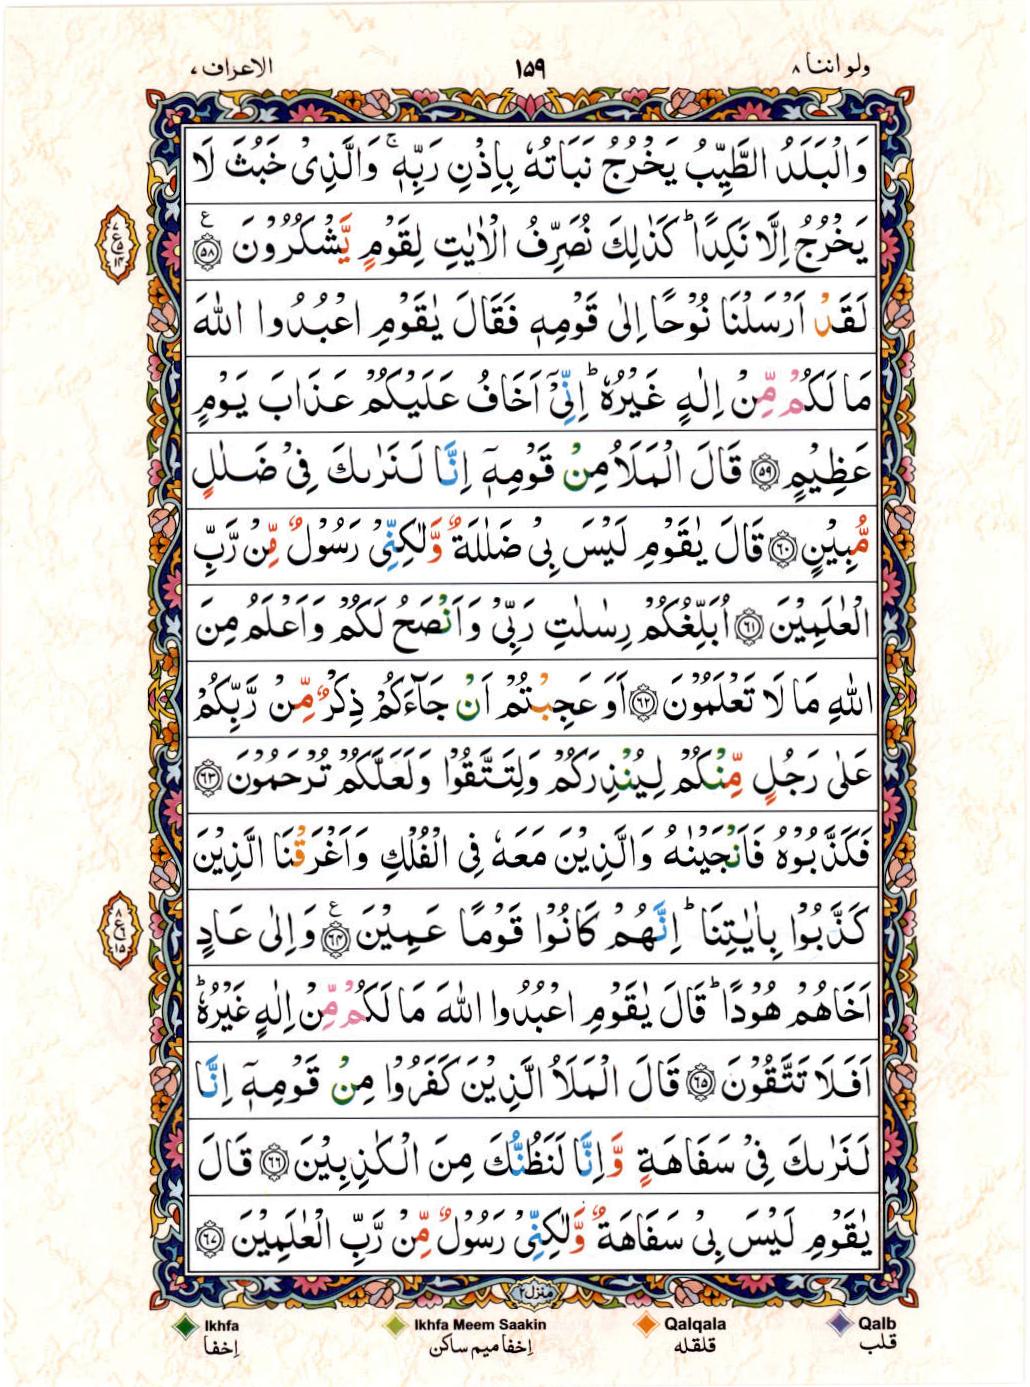 ولواننا ۸ ۱۵۹ الاعراف ۷
وَالۡبَلَدُ الطَّيِّبُ يَخۡرُجُ نَبَاتُهٗ بِاِذۡنِ رَبِّهٖ‌ۚ وَالَّذِىۡ خَبُثَ لَا
يَخۡرُجُ اِلَّا نَكِدًا‌ؕ كَذٰلِكَ نُصَرِّفُ الۡاٰيٰتِ لِقَوۡمٍ يَّشۡكُرُوۡنَ ﴿۵۸﴾ ع
لَقَدۡ اَرۡسَلۡنَا نُوۡحًا اِلٰى قَوۡمِهٖ فَقَالَ يٰقَوۡمِ اعۡبُدُوا اللّٰهَ
مَا لَـكُمۡ مِّنۡ اِلٰهٍ غَيۡرُهٗؕ اِنِّىۡۤ اَخَافُ عَلَيۡكُمۡ عَذَابَ يَوۡمٍ
عَظِيۡمٍ ﴿۵۹﴾ قَالَ الۡمَلَاُ مِنۡ قَوۡمِهٖۤ اِنَّا لَـنَرٰٮكَ فِىۡ ضَلٰلٍ
مُّبِيۡنٍ ﴿۶۰﴾ قَالَ يٰقَوۡمِ لَـيۡسَ بِىۡ ضَلٰلَةٌ وَّلٰـكِنِّىۡ رَسُوۡلٌ مِّنۡ رَّبِّ
الۡعٰلَمِيۡنَ ﴿۶۱﴾ اُبَلِّغُكُمۡ رِسٰلٰتِ رَبِّىۡ وَاَنۡصَحُ لَـكُمۡ وَاَعۡلَمُ مِنَ
اللّٰهِ مَا لَا تَعۡلَمُوۡنَ ﴿۶۲﴾ اَوَعَجِبۡتُمۡ اَنۡ جَآءَكُمۡ ذِكۡرٌ مِّنۡ رَّبِّكُمۡ
عَلٰى رَجُلٍ مِّنۡكُمۡ لِيُنۡذِرَكُمۡ وَلِتَـتَّقُوۡا وَلَعَلَّكُمۡ تُرۡحَمُوۡنَ ﴿۶۳﴾
فَكَذَّبُوۡهُ فَاَنۡجَيۡنٰهُ وَالَّذِيۡنَ مَعَهٗ فِى الۡفُلۡكِ وَاَغۡرَقۡنَا الَّذِيۡنَ
كَذَّبُوۡا بِاٰيٰتِنَا‌ؕ اِنَّهُمۡ كَانُوۡا قَوۡمًا عَمِيۡنَ ﴿۶۴﴾ ع وَاِلٰى عَادٍ
اَخَاهُمۡ هُوۡدًا‌ؕ قَالَ يٰقَوۡمِ اعۡبُدُوا اللّٰهَ مَا لَـكُمۡ مِّنۡ اِلٰهٍ غَيۡرُهٗ‌ؕ
اَفَلَا تَتَّقُوۡنَ ﴿۶۵﴾ قَالَ الۡمَلَاُ الَّذِيۡنَ كَفَرُوۡا مِنۡ قَوۡمِهٖۤ اِنَّا
لَـنَرٰٮكَ فِىۡ سَفَاهَةٍ وَّاِنَّا لَـنَظُنُّكَ مِنَ الۡـكٰذِبِيۡنَ ﴿۶۶﴾ قَالَ
يٰقَوۡمِ لَـيۡسَ بِىۡ سَفَاهَةٌ وَّلٰـكِنِّىۡ رَسُوۡلٌ مِّنۡ رَّبِّ الۡعٰلَمِيۡنَ ﴿۶۷﴾
منزل ۲
Ikhfa Ikhfa Meem Saakin Qalqala Qalb
اِخفا اِخفا میم ساکن قلقله قلب